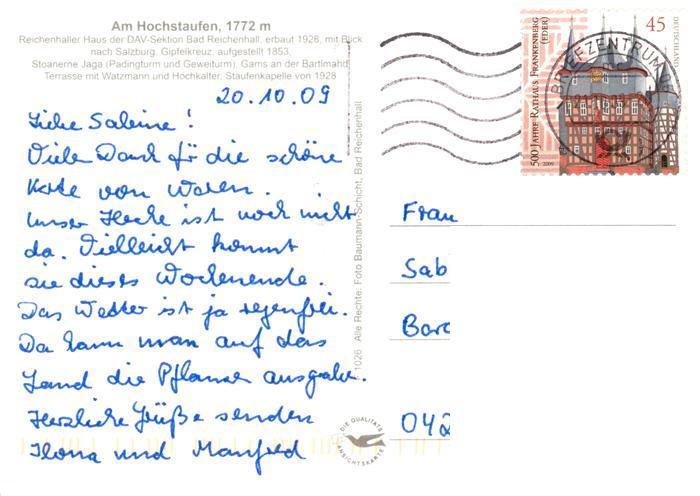 Am Hochstaufen, 1772 m
Reichenhaller Haus der DAV-Sektion Bad Reichenhall, erbaut 1926, mit Blick
nach Salzburg, Gipfelkreuz, aufgestellt 1853,
Stoanerne Jaga (Padingturm und Geweiturm), Gams an der Bartlmahd
Terrasse mit Watzmann und Hochkalter, Staufenkapelle von 1928
20.10.09
Liebe Sabine!
Vielen Dank für die schöne
Karte von Waren.
Unser Hecke ist noch nicht
da. Vielleicht kommt
sie dieses Wochenende.
Das Wetter ist ja regenfrei.
Da kann man auf das
Land die Pflanzen ausgraben.
Herzliche Grüße senden
Ilona und Manfred
1026 Alle Rechte: Foto Baumann-Schicht, Bad Reichenhall
DIE QUALITÄTS
ANSICHTSKARTE
500 JAHRE RATHAUS FRANKENBERG
(EDER)
45
DEUTSCHLAND
2009
BRIEFZENTRUM
Frau
Sab
042